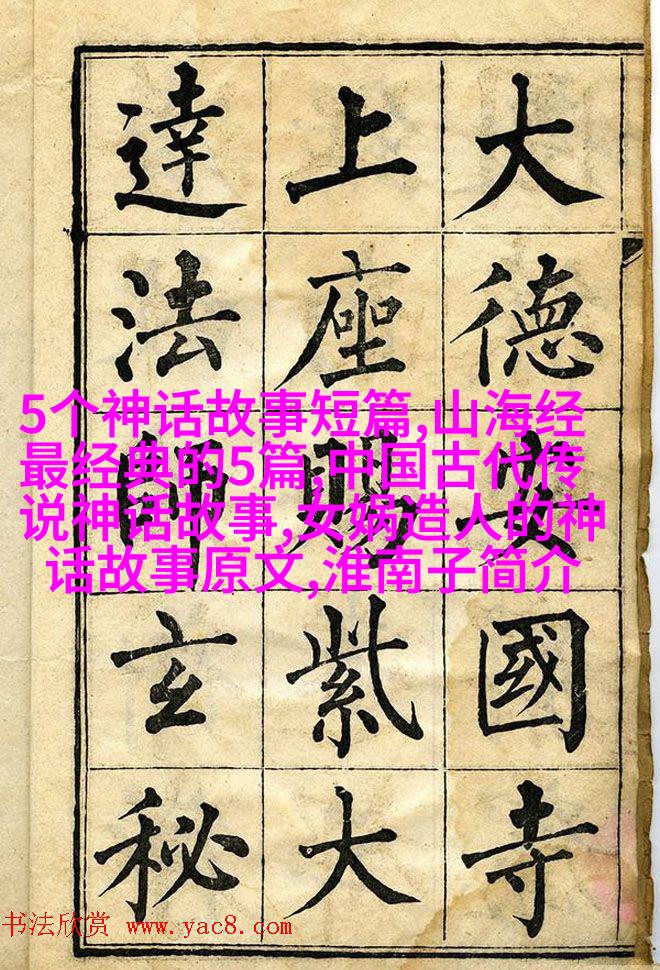 大德安國寺
上座賜紫大
達法師玄秘
5个神话故事短篇,山海经
最经典的5篇,中国古代传
说神话故事,女娲造人的神
话故事原文,淮南子简介
书法欣赏 www.yac8.com